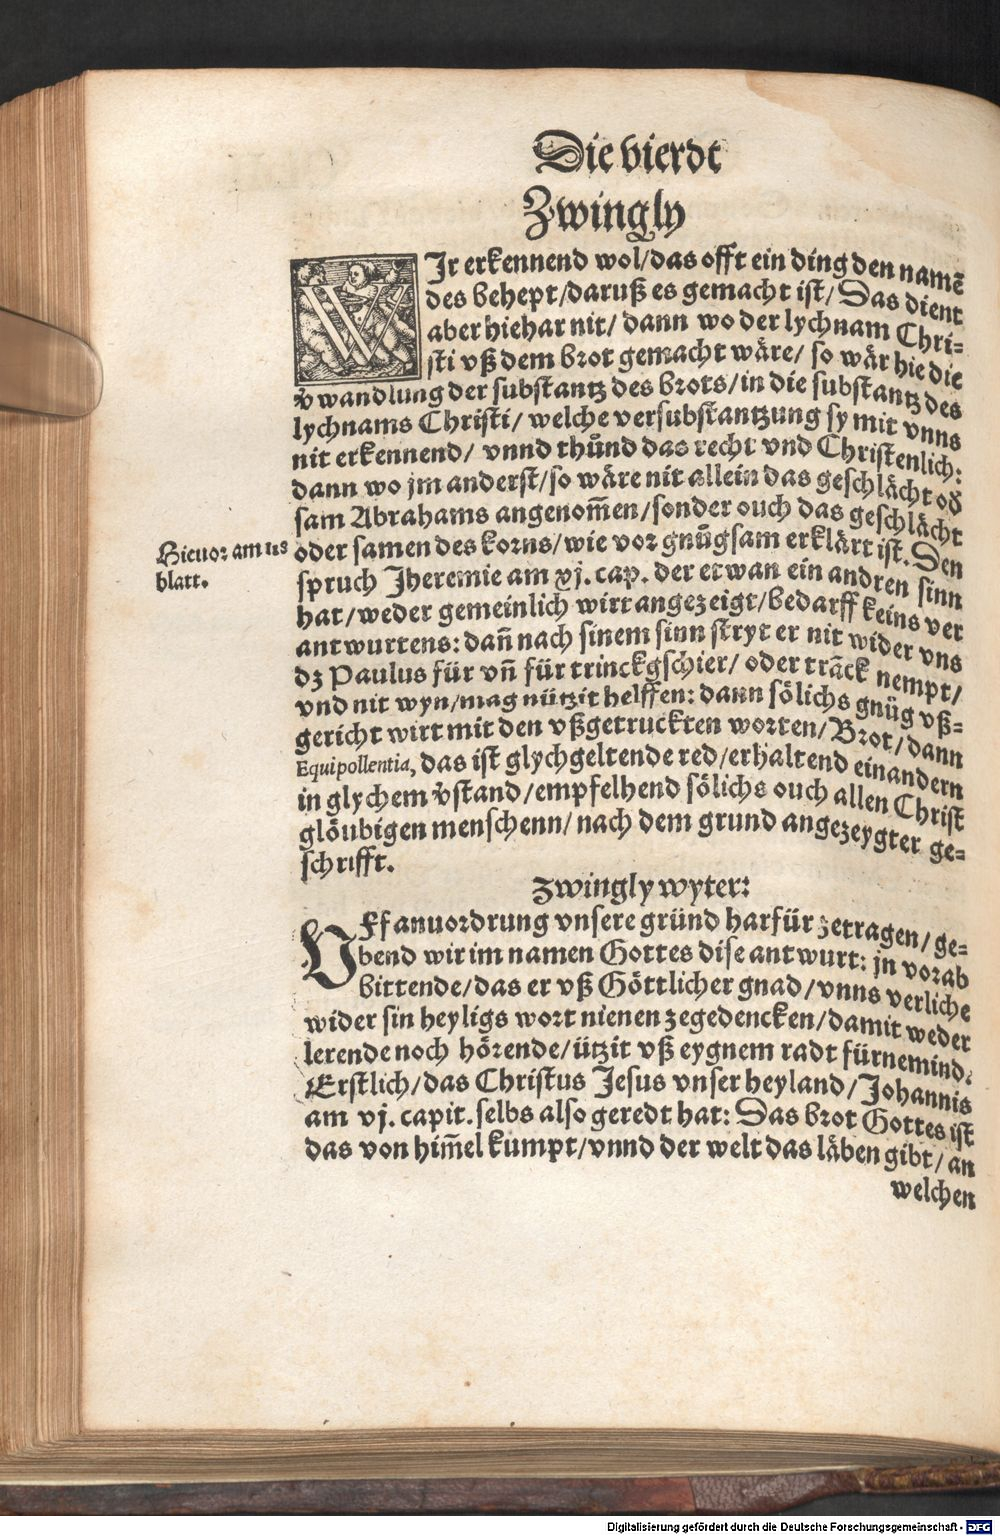 Die vierdt
Zwingly
WIr erkennend wol/das offt ein ding den namē
des behept/daruß es gemacht ist/Das dient
aber hiehar nit/dann wo der lychnam Chri-
sti vß dem brot gemacht wäre/so wär hie die
v̄wandlung der substantz des brots/in die substantz des
lychnams Christi/welche versubstantzung sy mit vnns
nit erkennend/vnnd thůnd das recht vnd Christenlich:
dann wo jm anderst/so wäre nit allein das geschlächt od̄
sam Abrahams angenom̄en/sonder ouch das geschlächt
oder samen des korns/wie vor gnůgsam erklärt ist. Den
spruch Jheremie am xj. cap. der etwan ein andren sinn
hat/weder gemeinlich wirt angezeigt/bedarff keins ver
antwurtens: dañ nach sinem sinn stryt er nit wider vns
dz Paulus für vñ für trinckgschier/oder trāck nempt/
vnd nit wyn/mag nützit helffen: dann sölichs gnůg vß-
gericht wirt mit den vßgetruckten worten/Brot/dann
Equipollentia, das ist glychgeltende red/erhaltend einandern
in glychem v̄stand/empfelhend sölichs ouch allen Christ
glöubigen menschenn/nach dem grund angezeygter ge-
schrifft.
Hieuor am
blatt.
Zwingly wyter:
VFf anuordrung vnsere gründ harfür zetragen/ge-
bend wir im namen Gottes dise antwurt: jn vorab
bittende/das er vß Göttlicher gnad/vnns verliche
wider sin heyligs wort nienen zegedencken/damit weder
lerende noch hörende/ützit vß eygnem radt fürnemind.
Erstlich/das Christus Jesus vnser heyland/Johannis
am vj. capit. selbs also geredt hat: Das brot Gottes ist
das von him̄el kumpt/vnnd der welt das läben gibt/an
welchen
Digitalisierung gefördert durch die Deutsche Forschungsgemeinschaft - DFG